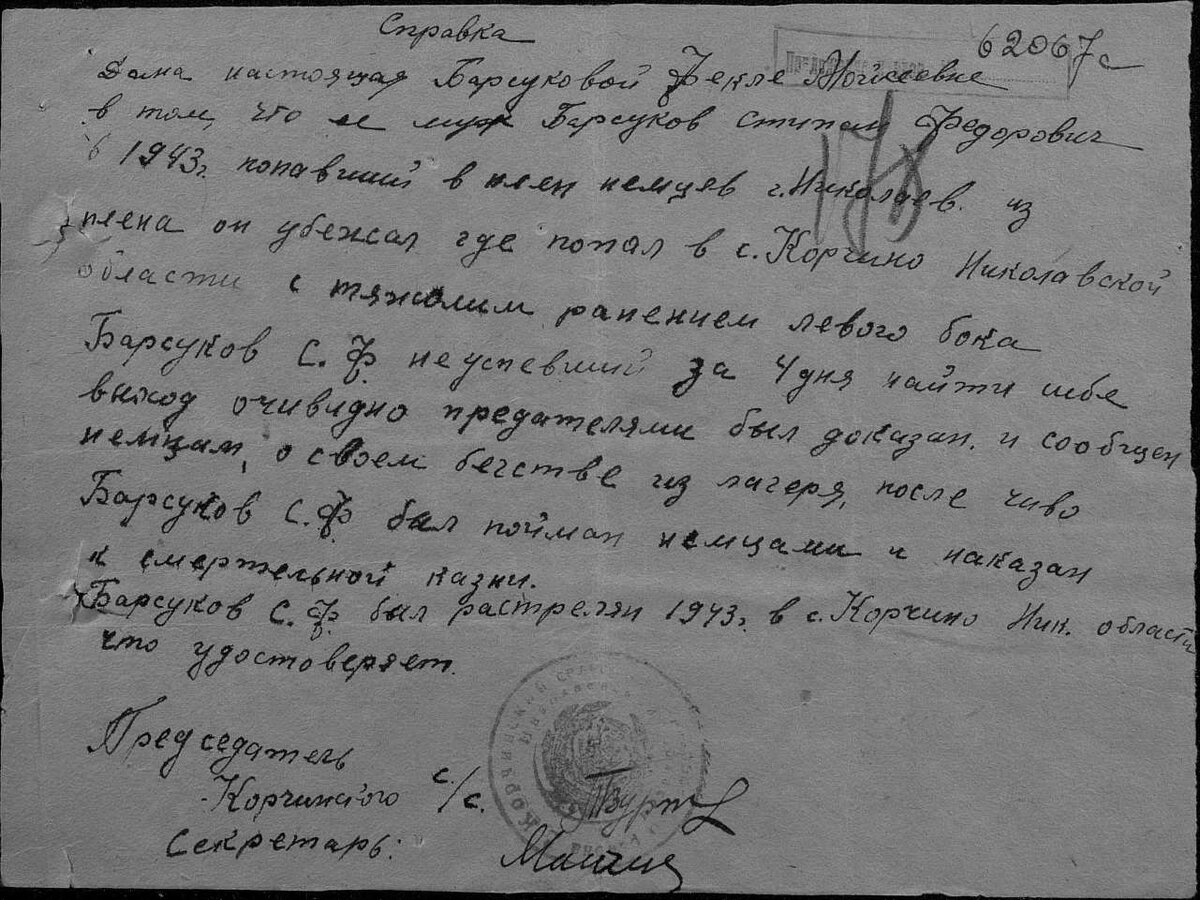 Справка
62067с
Дана настоящая Барсуковой Фекле Мойсеевне
в том, что ее муж Барсуков Степан Федорович
в 1943г. попавший в плен немцев г. Николаев. из
плена он убежал где попал в с. Корчино Николавской
области с тяжолим ранением левого бока
Барсуков С. Ф. неуспевший за 4 дня найти себе
выход очивидно предателями был доказан. и сообщен
немцам, о своем бегстве из лагеря, после чиво
Барсуков С. Ф. был пойман немцами и наказан
к смертельной казни.
Барсуков С. Ф. был растрелян 1943г. в с. Корчино Ник. области
что удостоверяет.
Председатель
Корчинского с/с.
Секретарь: